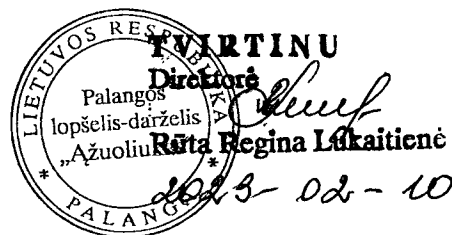 TVIRTINU
Direktorė
Rūta Regina Lukaitienė
2023-02-10
LIETUVOS RESPUBLIKA
Palangos
lopšelis-darželis
„Ąžuoliukas"
* PALANGA *